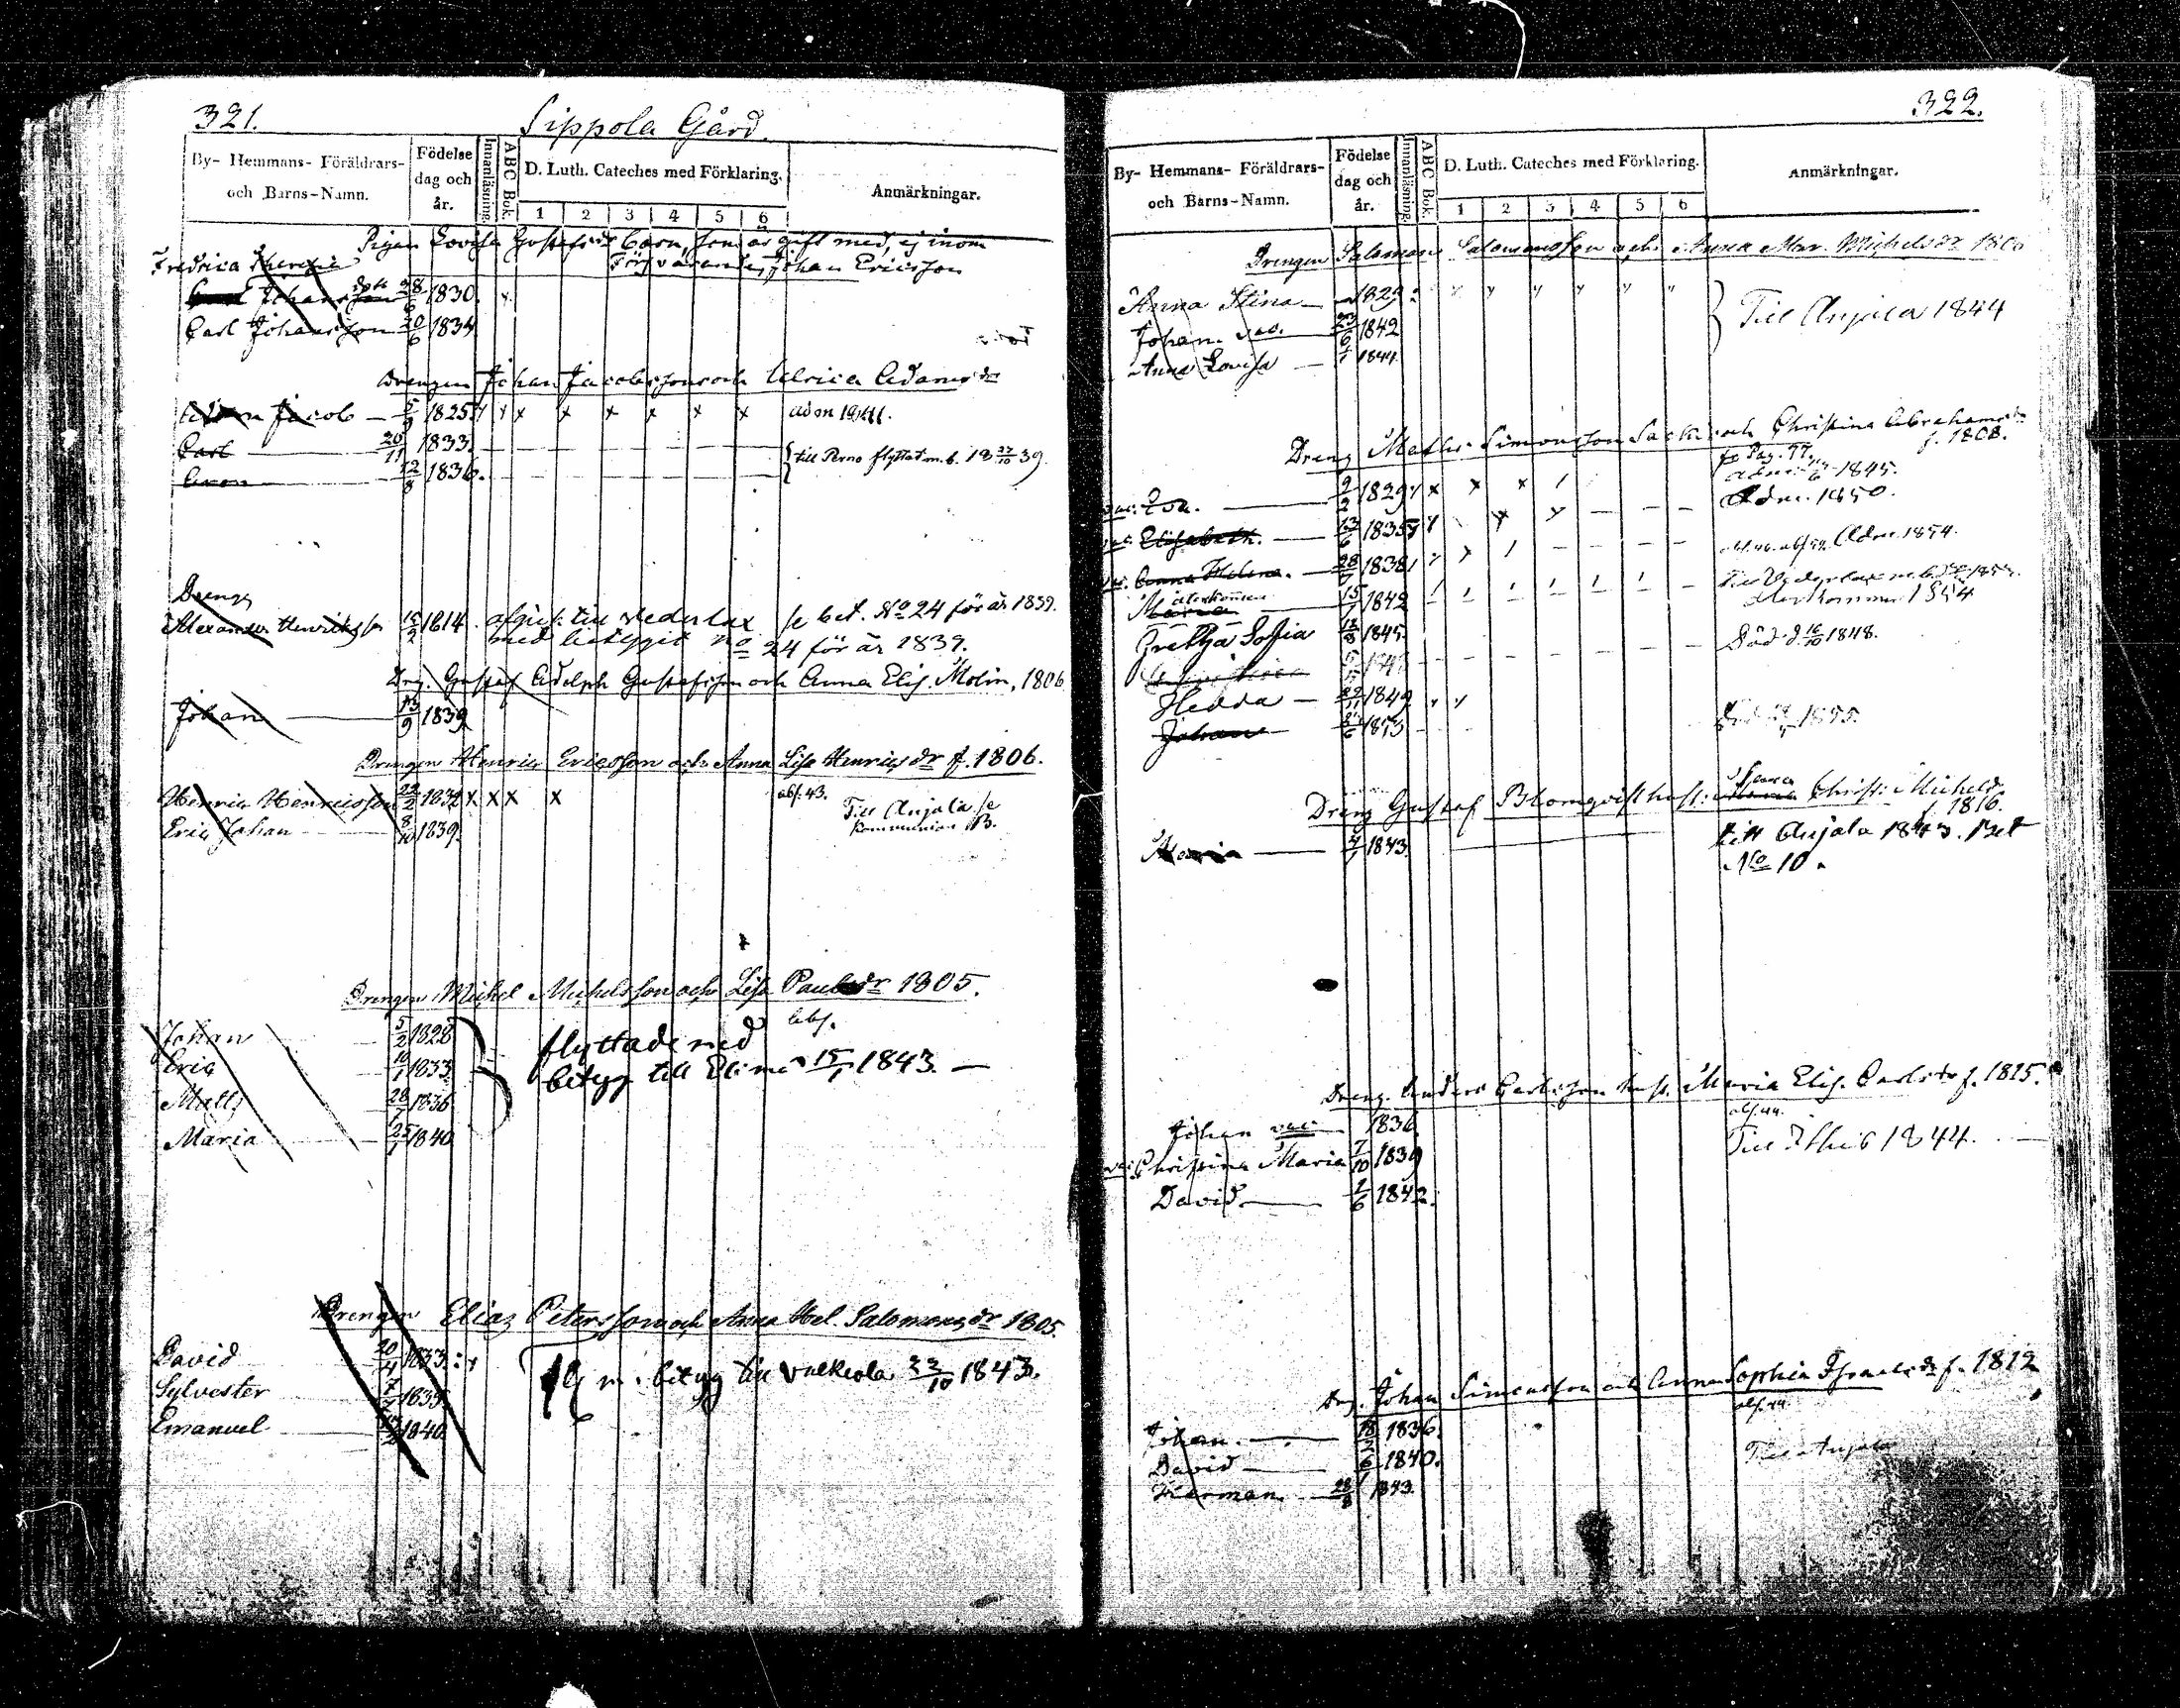 321.
Sippola Gård.
By- Hemmans- Föräldrars-
och Barns-Namn.
Födelse
dag och
år.
Innanläsning.
ABC Bok.
D. Luth. Cateches med Förklaring.
1 2 3 4 5 6
Anmärkningar.
Pigan Lovisa Gustafsdr barn, som är gift med, ej inom
Försvarandes, Johan Ericsson
Fredrica
Johansson dotr 28/6 1830. x
Carl Johansson 20/6 1834
Drengen Johan Jacobsson och Ulrica Adamsdr
Jacob 5/9 1825 x x x x x x x
Carl 20/11 1833.
Aron 12/8 1836.
till Perno flyttat m. b. 18 27/10 39.
Dreng
Alexander Henriksson 15/2 1814. afgick till Vederlax se bet. No 24 för år 1839.
med betyget No 24 för år 1839.
Drg. Gustaf Adolph Gustafsson och Anna Elis. Molin, 1806
Johan 13/9 1839
Drengen Henric Ericsson och Anna Lisa Henricsdr f. 1806.
Henric Henricsson 22/2 1832 x x x x abs. 43.
Eric Johan 8/10 1839.
Till Anjala se
Kommunion B.
Drengen Michel Michelsson och Lisa Paulsdr 1805.
abs.
Johan 5/2 1828
Eric 10/1 1833
Matts 28/7 1836
Maria 25/1 1840
flyttade med
betyg till Elimä 15/1 1843.
Drengen Elias Petersson och Anna Hel. Salomonsdr 1805.
David 20/4 1833
Sylvester 7/7 1835
Emanuel 1840
m. betyg till Valkeala 22/10 1843.
322.
By- Hemmans- Föräldrars-
och Barns-Namn.
Födelse
dag och
år.
Innanläsning.
ABC Bok.
D. Luth. Cateches med Förklaring.
1 2 3 4 5 6
Anmärkningar.
Drengen Salomon Salomonsson och Anna Mar. Michelsdr
Anna Stina 1829
Johan vac. 23/6 1842
Anna Lovisa 1844
Till Anjala 1844
Dreng Matts Simonsson och Christina Abrahamsdr
f. 1808.
Pag. 77.
vac. Eva. 9/2 1829 1845.
vac. Elisabeth. 13/6 1835 Adm. 1850.
vac. Anna Helena. 28/7 1838 Adm. 1854.
Maria återkommen 15/1 1842
Återkommen 1854
Gretha Sofia 12/8 1845.
Död d. 16/10 1848.
Hedda 22/11 1849
Johan 1853 1855.
Dreng Gustaf Blomqvist hust: Christ: Michelsdr
f. 1816.
Maria 4/1 1843.
till Anjala 1843. Bet
No 10.
Dreng. Anders Carlsson hust. Maria Elis. Carlsdr f. 1815.
abs. 44.
Johan vac. 1836
vac. Christina Maria 7/10 1839
David 1/6 1842.
Till 1844.
Drg. Johan Simonsson och Anna Sophia Israelsdr f. 1812
abs. 44
Johan. 18/2 1836.
David 6/1 1840.
Herman 28/8 1843.
Till Anjala